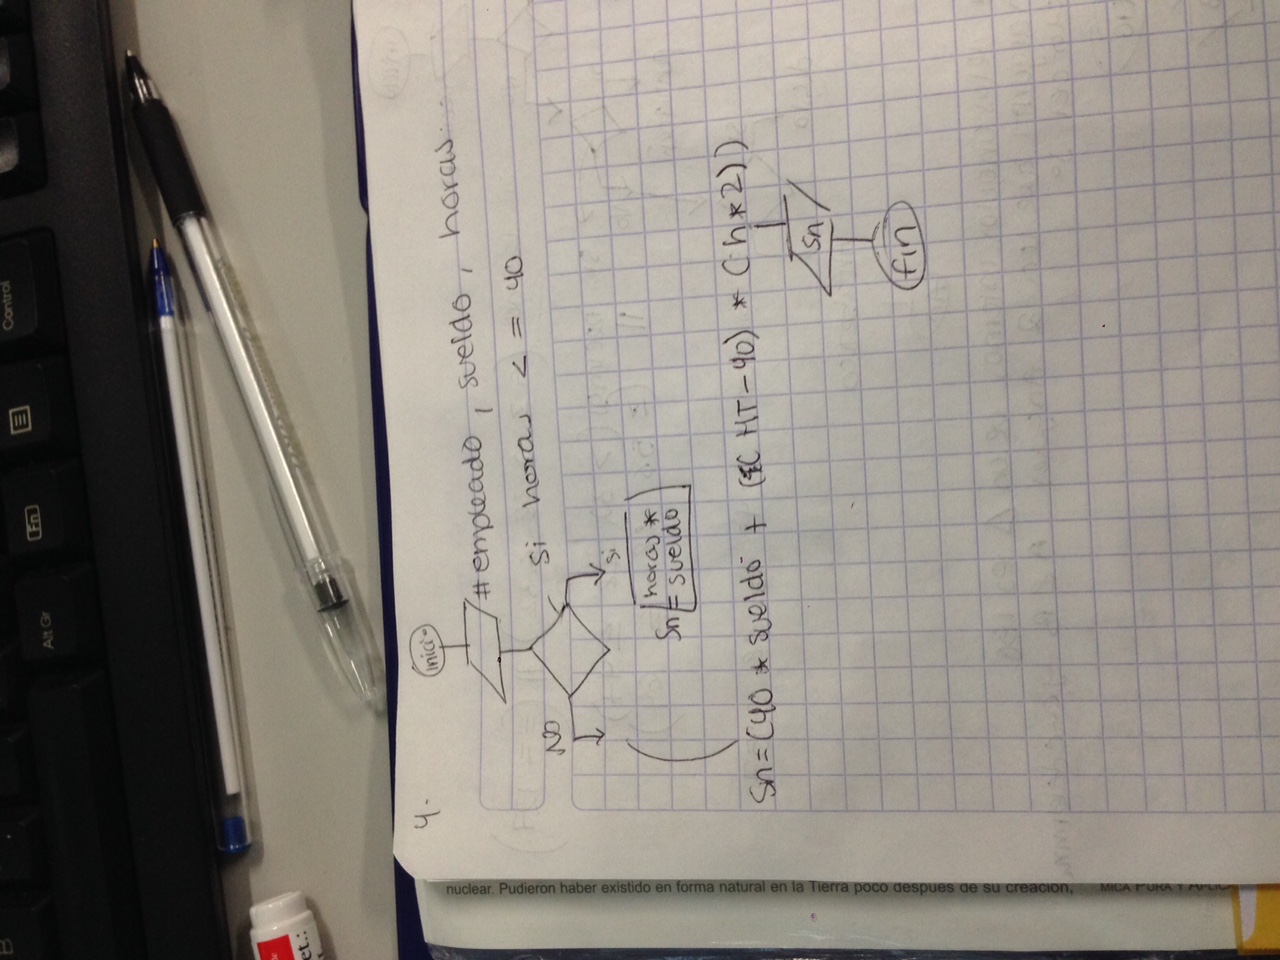 B
Alt Gr
Fn
Control
et.:
4.
inicio
#empleado, sueldo, horas
Si horas <= 40
NO
si
horas *
Sn= sueldo
Sn=(40 * sueldo + ((HT-40) * (h*2))
Sn
fin
nuclear. Pudieron haber existido en forma natural en la Tierra poco después de su creación.